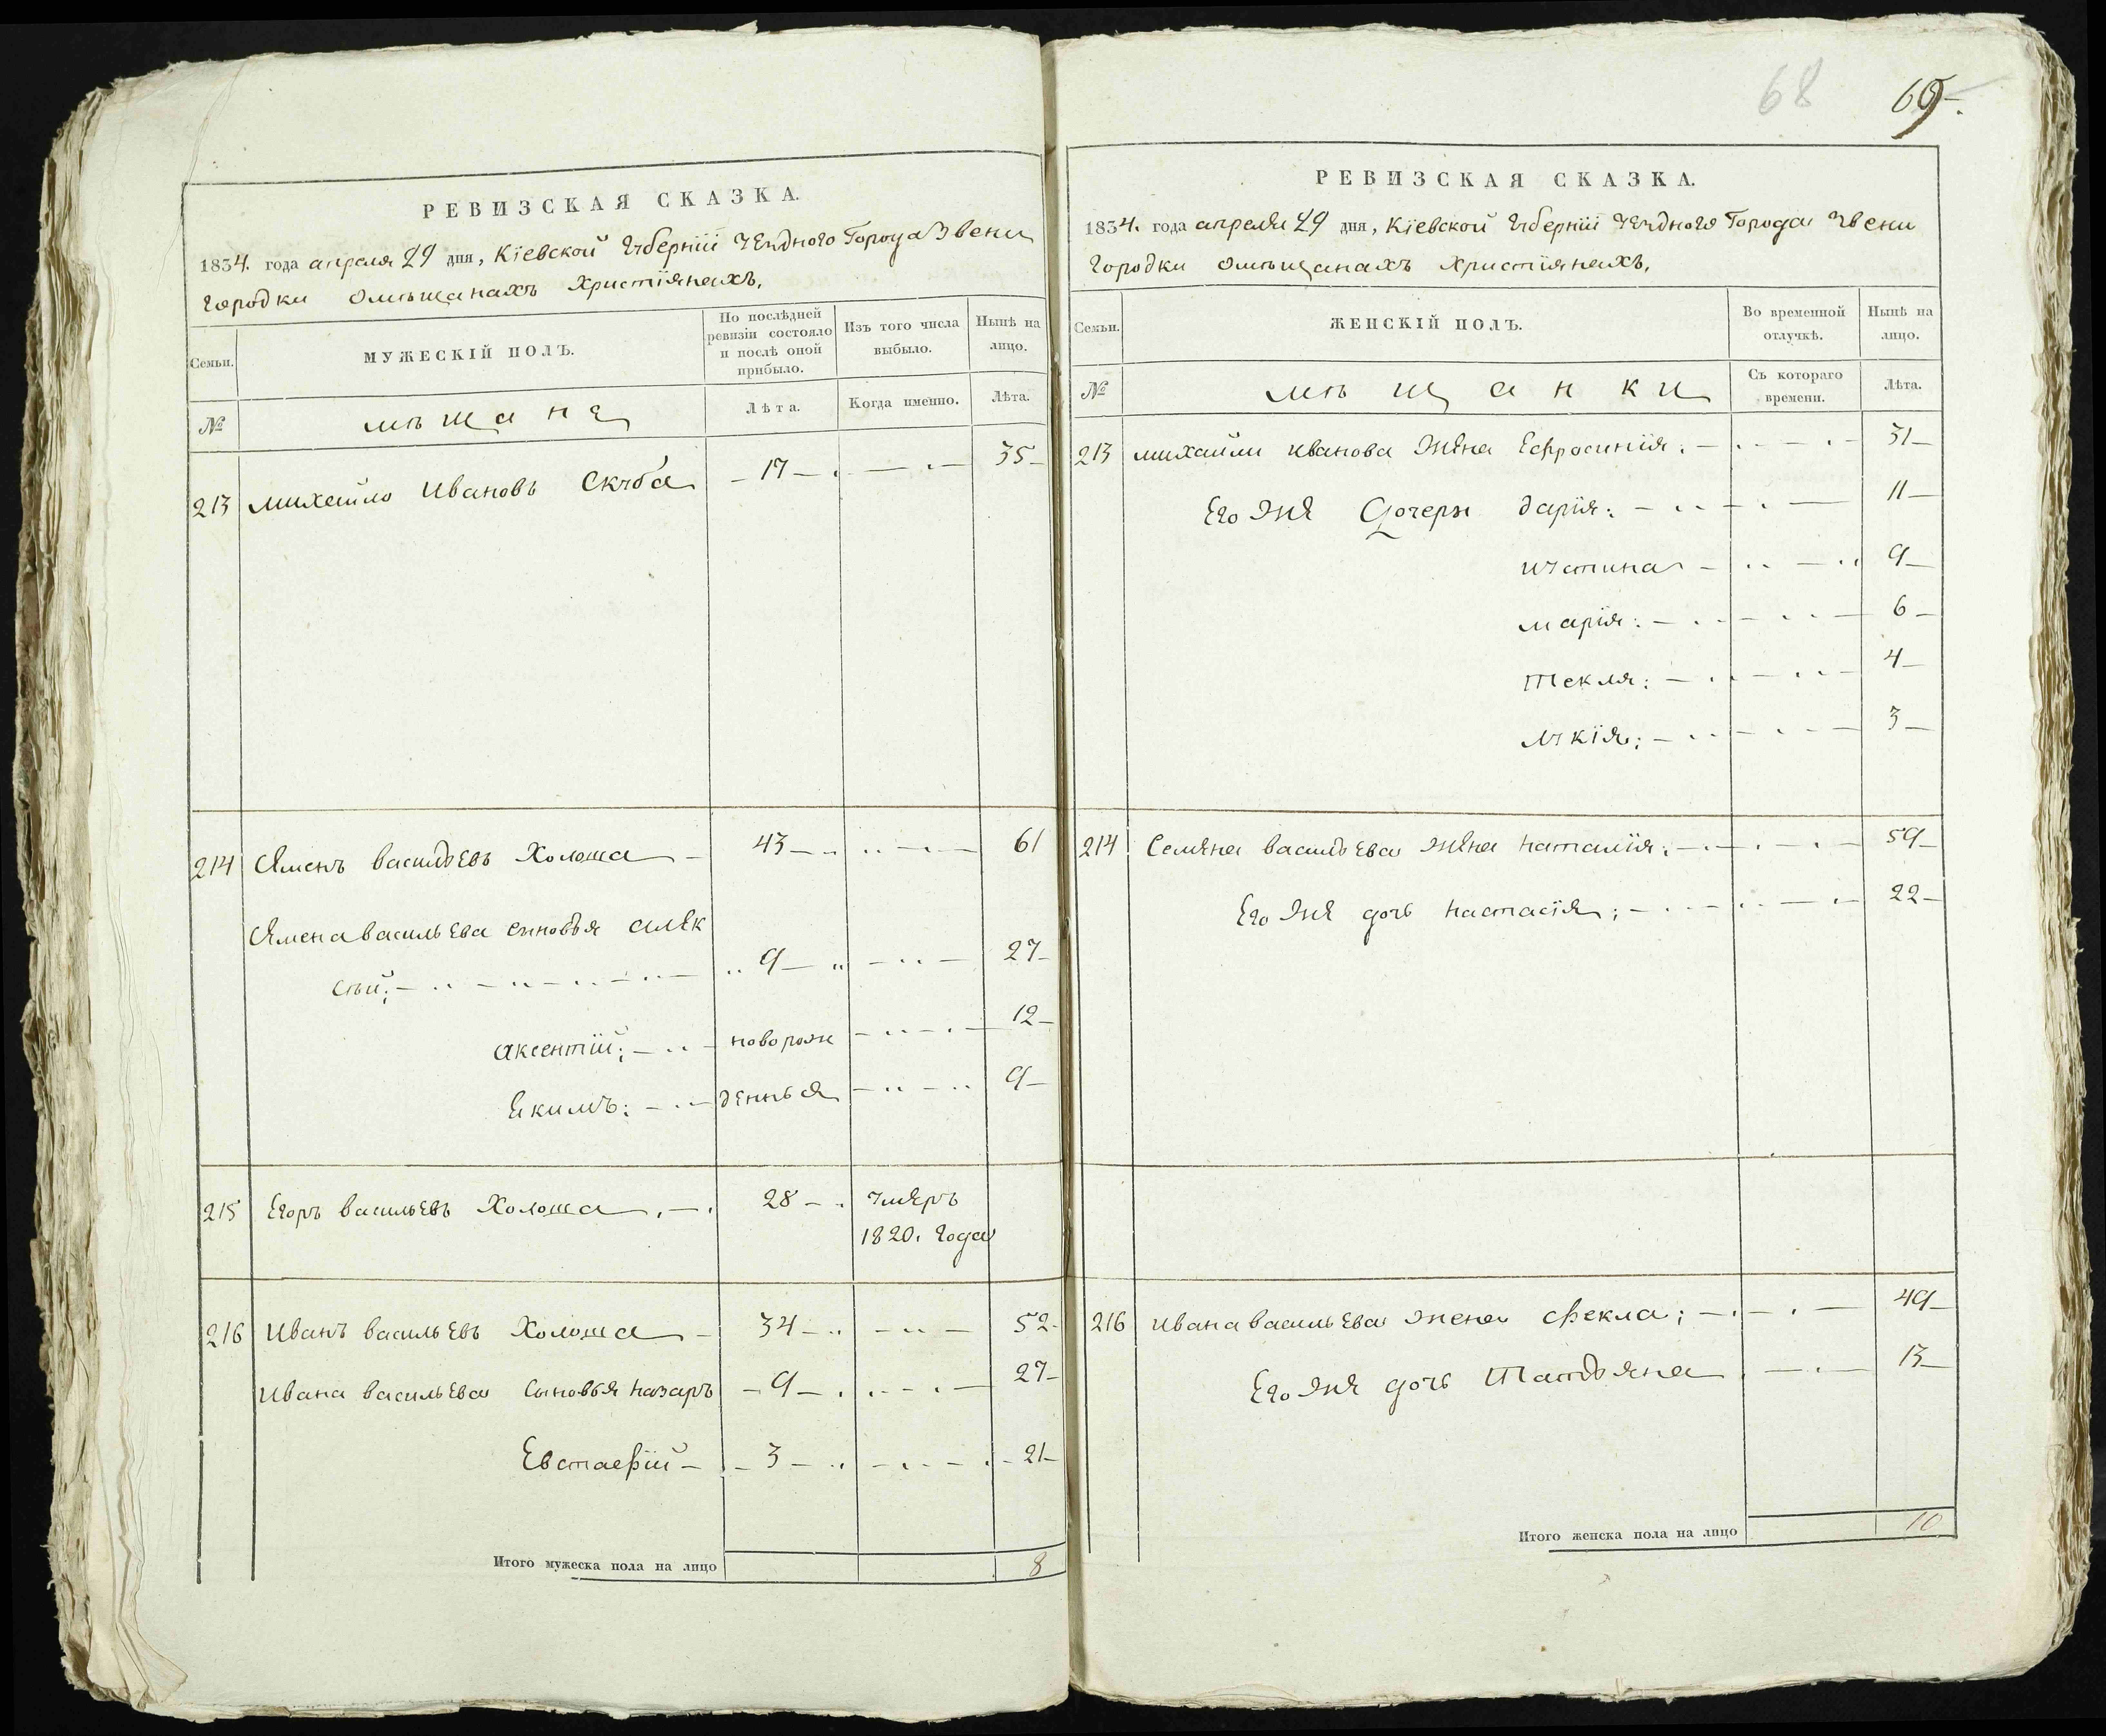 68
69
РЕВИЗСКАЯ СКАЗКА.
1834. года апреля 29 дня, Кіевской Губерніи Уезднаго Города Звени
городки омѣщанахъ Христіянахъ.
Семьи.
МУЖЕСКІЙ ПОЛЪ.
По послѣдней ревизіи состояло и послѣ оной прибыло.
Изъ того числа выбыло.
Нынѣ на лицо.
№
мѣщане
Лѣта.
Когда именно.
Лѣта.
213 михайло Ивановъ Скуба 17 35
214 Сямснъ васильевъ Холоша 43 61
Сямена васильева сыновья алек
сѣй; 9 27
аксентіи; новорож 12
Екимъ: денныя 9
215 Егоръ васильевъ Холоша 28 умеръ
1820. года
216 Иванъ васильевъ Холоша 34 52
Ивана васильева сыновья назаръ 9 27
Евстафіи 3 21
Итого мужеска пола на лицо 8
РЕВИЗСКАЯ СКАЗКА.
1834. года апреля 29 дня, Кіевской Губерніи Уезднаго Города Звени
городки омѣщанахъ Христіянахъ.
Семьи.
ЖЕНСКІЙ ПОЛЪ.
Во временной отлучкѣ.
Нынѣ на лицо.
№
мѣщанки
Съ котораго времени.
Лѣта.
213 михайли иванова жена Ефросинія: 31
Его же дочери дарія: 11
устина 9
марія: 6
текля: 4
лукія: 3
214 Семена васильева жена наталія: 59
Его же дочь настасія; 22
216 ивана васильева жена фекла; 49
Его же дочь татьяна 13
Итого женска пола на лицо 10